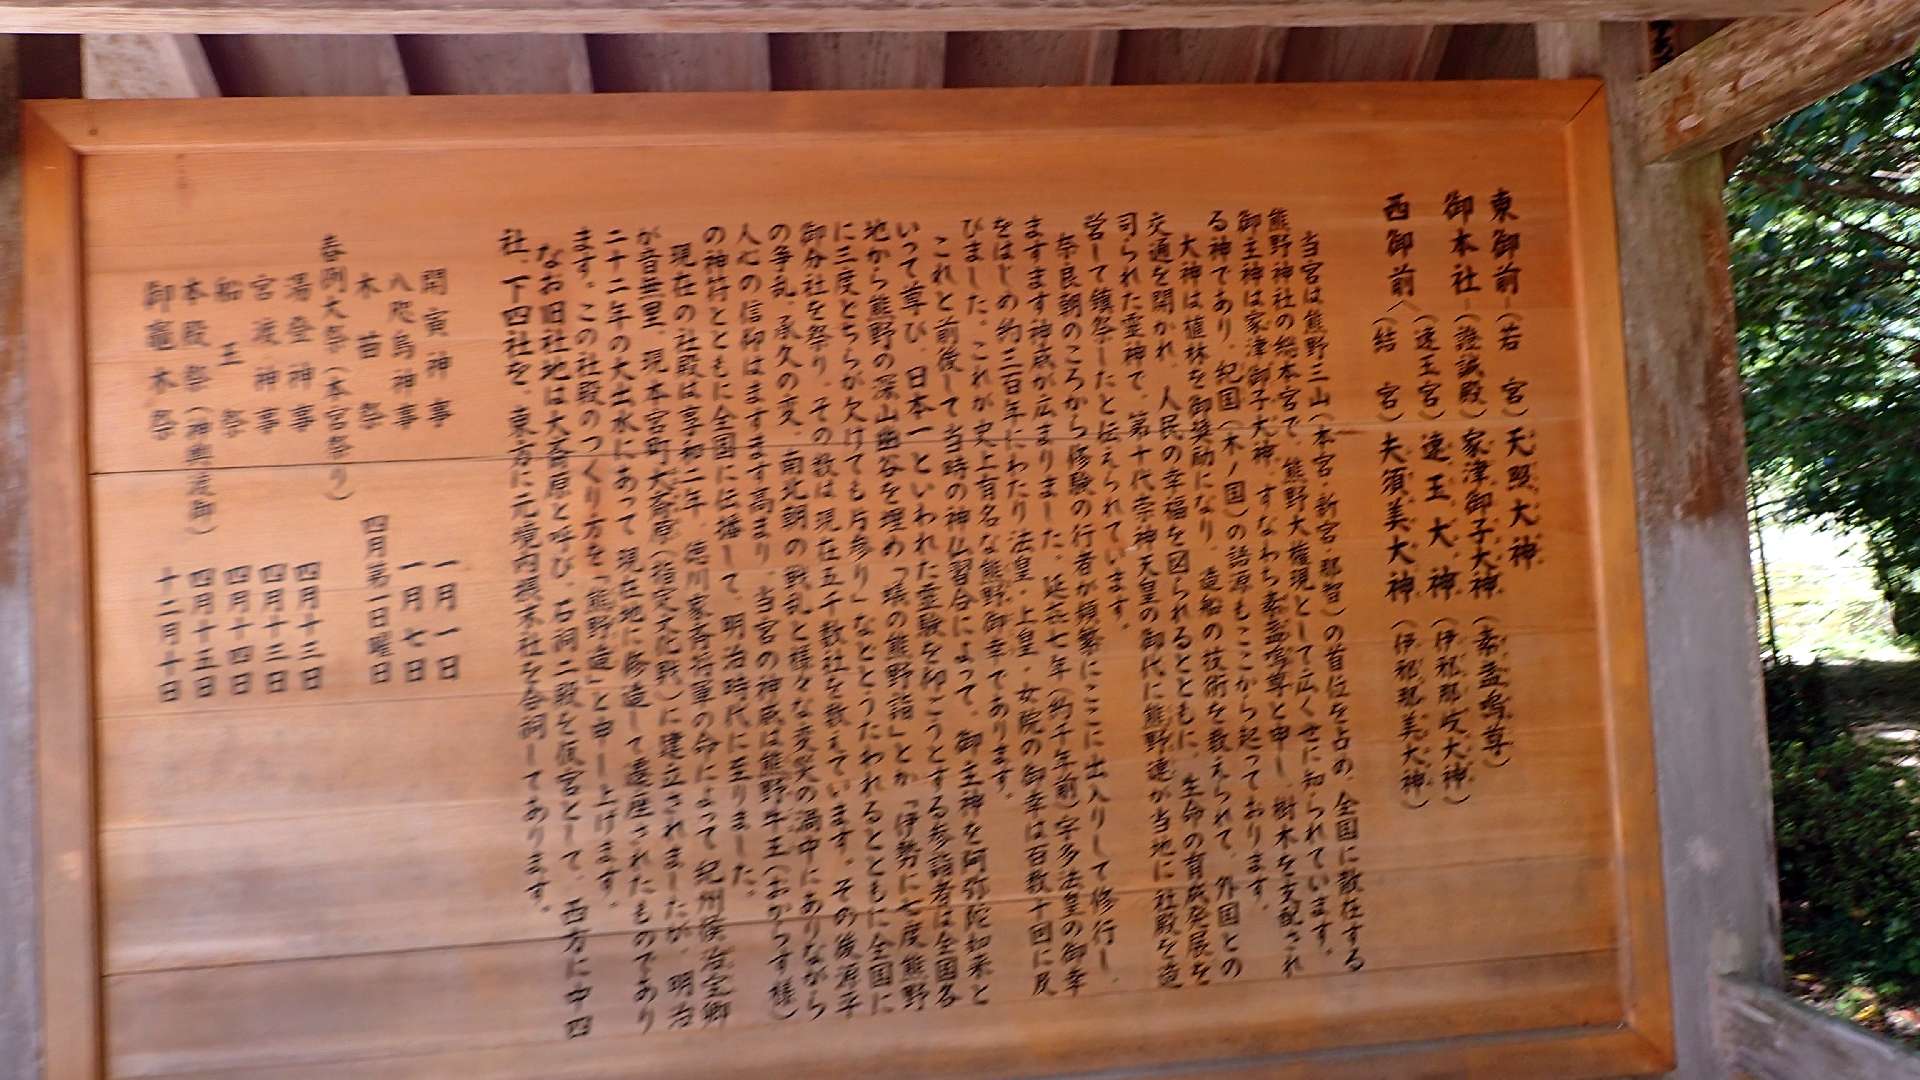 東御前―(若　宮)天照大神
御本社―(證誠殿)家津御子大神(素盞嗚尊)
(速玉宮)速玉大神(伊邪那岐大神)
西御前
(結　宮)夫須美大神(伊邪那美大神)
当宮は熊野三山(本宮・新宮・那智)の首位を占め、全国に散在する
熊野神社の総本宮で、熊野大権現として広く世に知られています。
御主神は家津御子大神、すなわち素盞嗚尊と申し、樹木を支配され
る神であり、紀国(木ノ国)の語源もここから起っております。
大神は植林を御奨励になり、造船の技術を教えられて、外国との
交通を開かれ、人民の幸福を図られるとともに、生命の育成発展を
司られた霊神で、第十代崇神天皇の御代に熊野連が当地に社殿を造
営して鎮祭したと伝えられています。
奈良朝のころから修験の行者が頻繁にここに出入りして修行し、
ますます神威が広まりました。延喜七年(約千年前)宇多法皇の御幸
をはじめ約三百年にわたり法皇・上皇・女院の御幸は百数十回に及
びました。これが史上有名な熊野御幸であります。
これと前後して当時の神仏習合によって、御主神を阿弥陀如来と
いって尊び、日本一といわれた霊験を仰ごうとする参詣者は全国各
地から熊野の深山幽谷を埋め「蟻の熊野詣」とか「伊勢に七度熊野
に三度どちらが欠けても片参り」などとうたわれるとともに全国に
御分社を祭り、その数は現在五千数社を数えています。その後源平
の争乱、承久の変、南北朝の戦乱と様々な変災の渦中にありながら
人心の信仰はますます高まり、当宮の神威は熊野牛王(おからす様)
の神符とともに全国に伝播して、明治時代に至りました。
現在の社殿は享和二年、徳川家斉将軍の命によって紀州候治宝卿
が音無里、現本宮町大斎原(指定文化財)に建立されましたが、明治
二十二年の大出水にあって現在地に修造して遷座されたものであり
ます。この社殿のつくり方を「熊野造」と申し上げます。
なお旧社地は大斎原と呼び、石祠二殿を仮宮として、西方に中四
社、下四社を、東方に元境内摂末社を合祠してあります。
開寅神事　一月一日
八咫烏神事　一月七日
木苗祭　四月第一日曜日
春例大祭(本宮祭り)
湯登神事　四月十三日
宮渡神事　四月十三日
船玉祭　四月十四日
本殿祭(神輿渡御)　四月十五日
御竈木祭　十二月十日